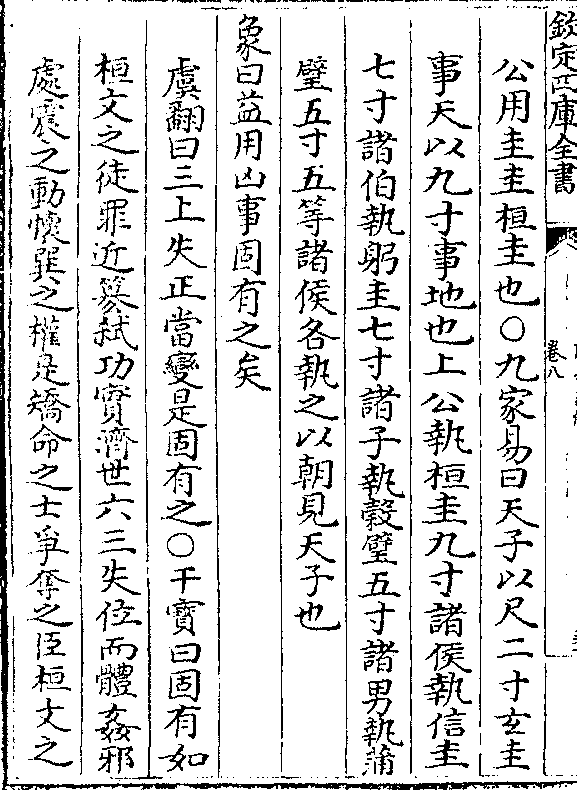 欽定四庫全書
卷八
公用圭圭桓圭也○九家易曰天子以尺二寸玄圭
事天以九寸事地也上公執桓圭九寸諸侯執信圭
七寸諸伯執躬圭七寸諸子執穀璧五寸諸男執蒲
璧五寸五等諸侯各執之以朝見天子也
象曰益用凶事固有之矣
虞翻曰三上失正當變是固有之○干寶曰固有如
桓文之徒罪近簒弑功實濟世六三失位而體姦邪
處震之動懷巽之權是矯命之士爭奪之臣桓文之